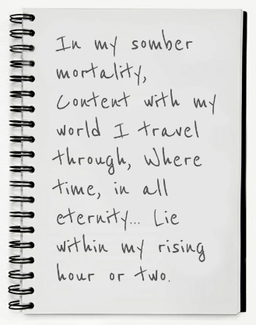 In my somber
mortality,
Content with my
world I travel
through, Where
time, in all
eternity... Lie
within my rising
hour or two.